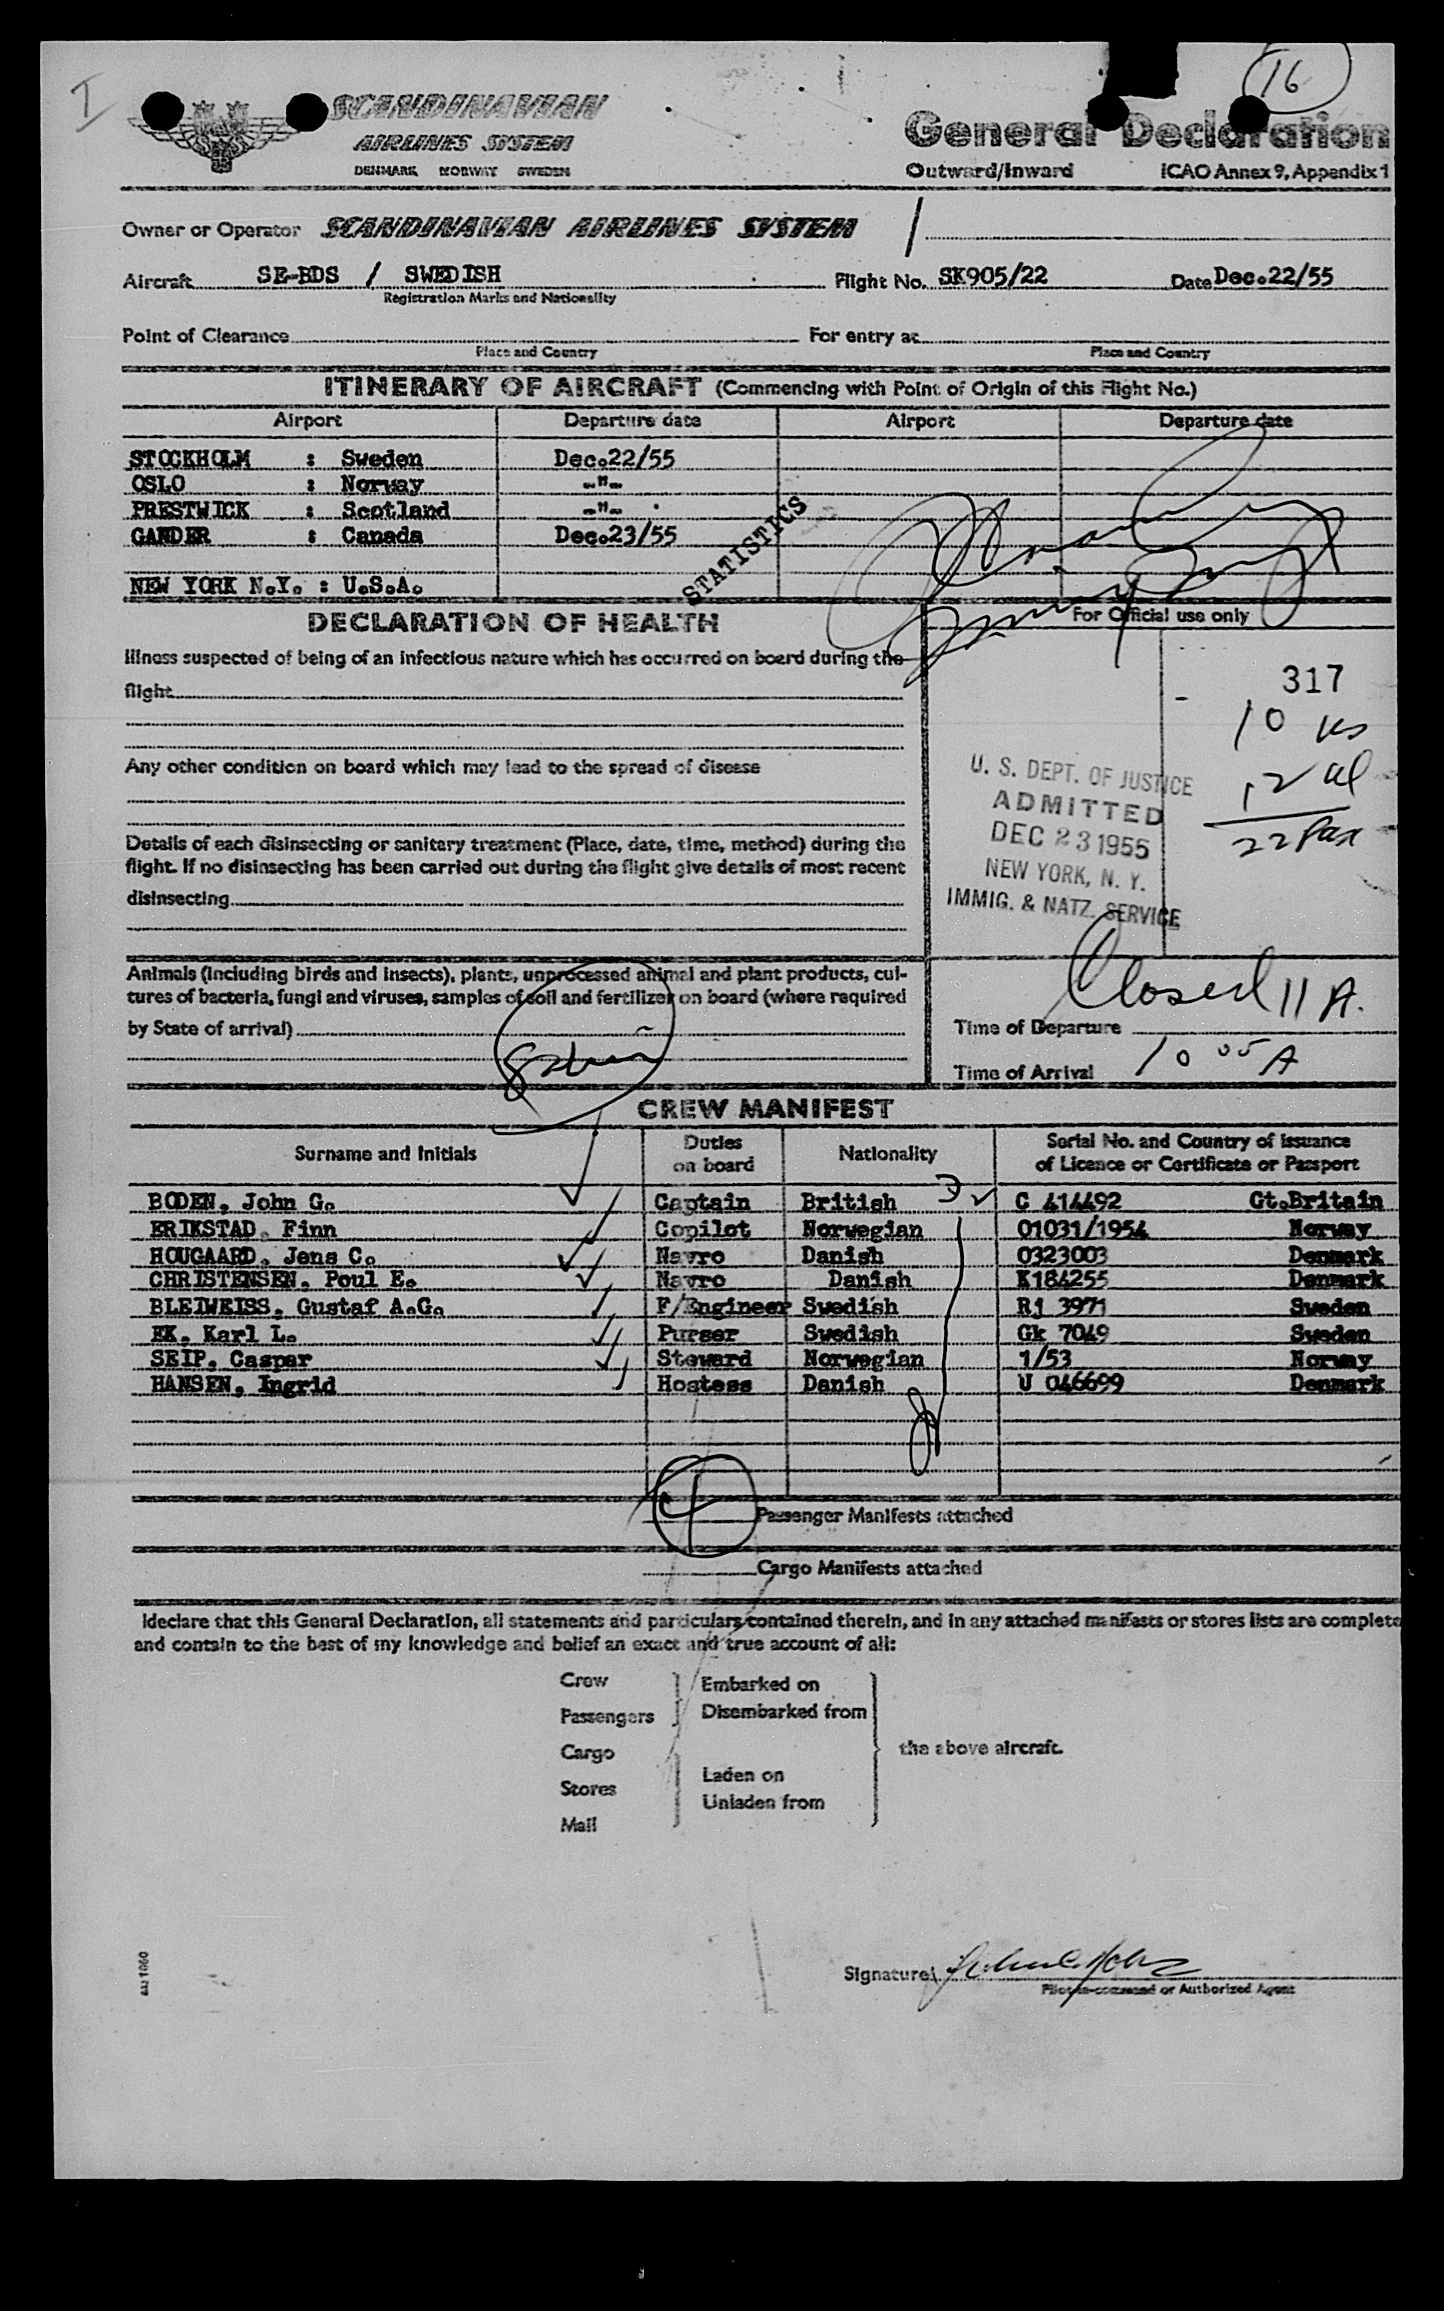 I
16
SCANDINAVIAN
AIRLINES SYSTEM
DENMARK NORWAY SWEDEN
General Declaration
Outward/Inward ICAO Annex 9, Appendix 1
Owner or Operator SCANDINAVIAN AIRLINES SYSTEM
Aircraft SE-BDS / SWEDISH Flight No. SK905/22 Date Dec.22/55
Registration Marks and Nationality
Point of Clearance For entry at
Place and Country Place and Country
ITINERARY OF AIRCRAFT (Commencing with Point of Origin of this Flight No.)
Airport Departure date Airport Departure date
STOCKHOLM : Sweden Dec.22/55
OSLO : Norway -"-
PRESTWICK : Scotland -"-
GANDER : Canada Dec.23/55
NEW YORK N.Y. : U.S.A.
STATISTICS
DECLARATION OF HEALTH
For Official use only
Illness suspected of being of an infectious nature which has occurred on board during the
flight
317
10 us
12 al
22 Pax
Any other condition on board which may lead to the spread of disease
U. S. DEPT. OF JUSTICE
ADMITTED
DEC 23 1955
NEW YORK, N. Y.
IMMIG. & NATZ. SERVICE
Details of each disinsecting or sanitary treatment (Place, date, time, method) during the
flight. If no disinsecting has been carried out during the flight give details of most recent
disinsecting
Animals (including birds and insects), plants, unprocessed animal and plant products, cul-
tures of bacteria, fungi and viruses, samples of soil and fertilizer on board (where required
by State of arrival)
Closed 11 A.
Time of Departure
Time of Arrival 10 05 A
CREW MANIFEST
Surname and Initials Duties on board Nationality Serial No. and Country of issuance
of Licence or Certificate or Passport
BODEN, John G. Captain British C 414492 Gt.Britain
ERIKSTAD, Finn Copilot Norwegian 01031/1954 Norway
HOUGAARD, Jens C. Navro Danish 0323003 Denmark
CHRISTENSEN, Poul E. Navro Danish K184255 Denmark
BLEIWEISS, Gustaf A.G. F/Engineer Swedish Rj 3971 Sweden
EK, Karl L. Purser Swedish Gk 7049 Sweden
SEIP, Caspar Steward Norwegian 1/53 Norway
HANSEN, Ingrid Hostess Danish U 046699 Denmark
Passenger Manifests attached
Cargo Manifests attached
I declare that this General Declaration, all statements and particulars contained therein, and in any attached manifests or stores lists are complete
and contain to the best of my knowledge and belief an exact and true account of all:
Crew
Passengers
Embarked on
Disembarked from
Cargo
Stores
Mail
Laden on
Unladen from
the above aircraft.
Signature
Pilot-in-command or Authorized Agent